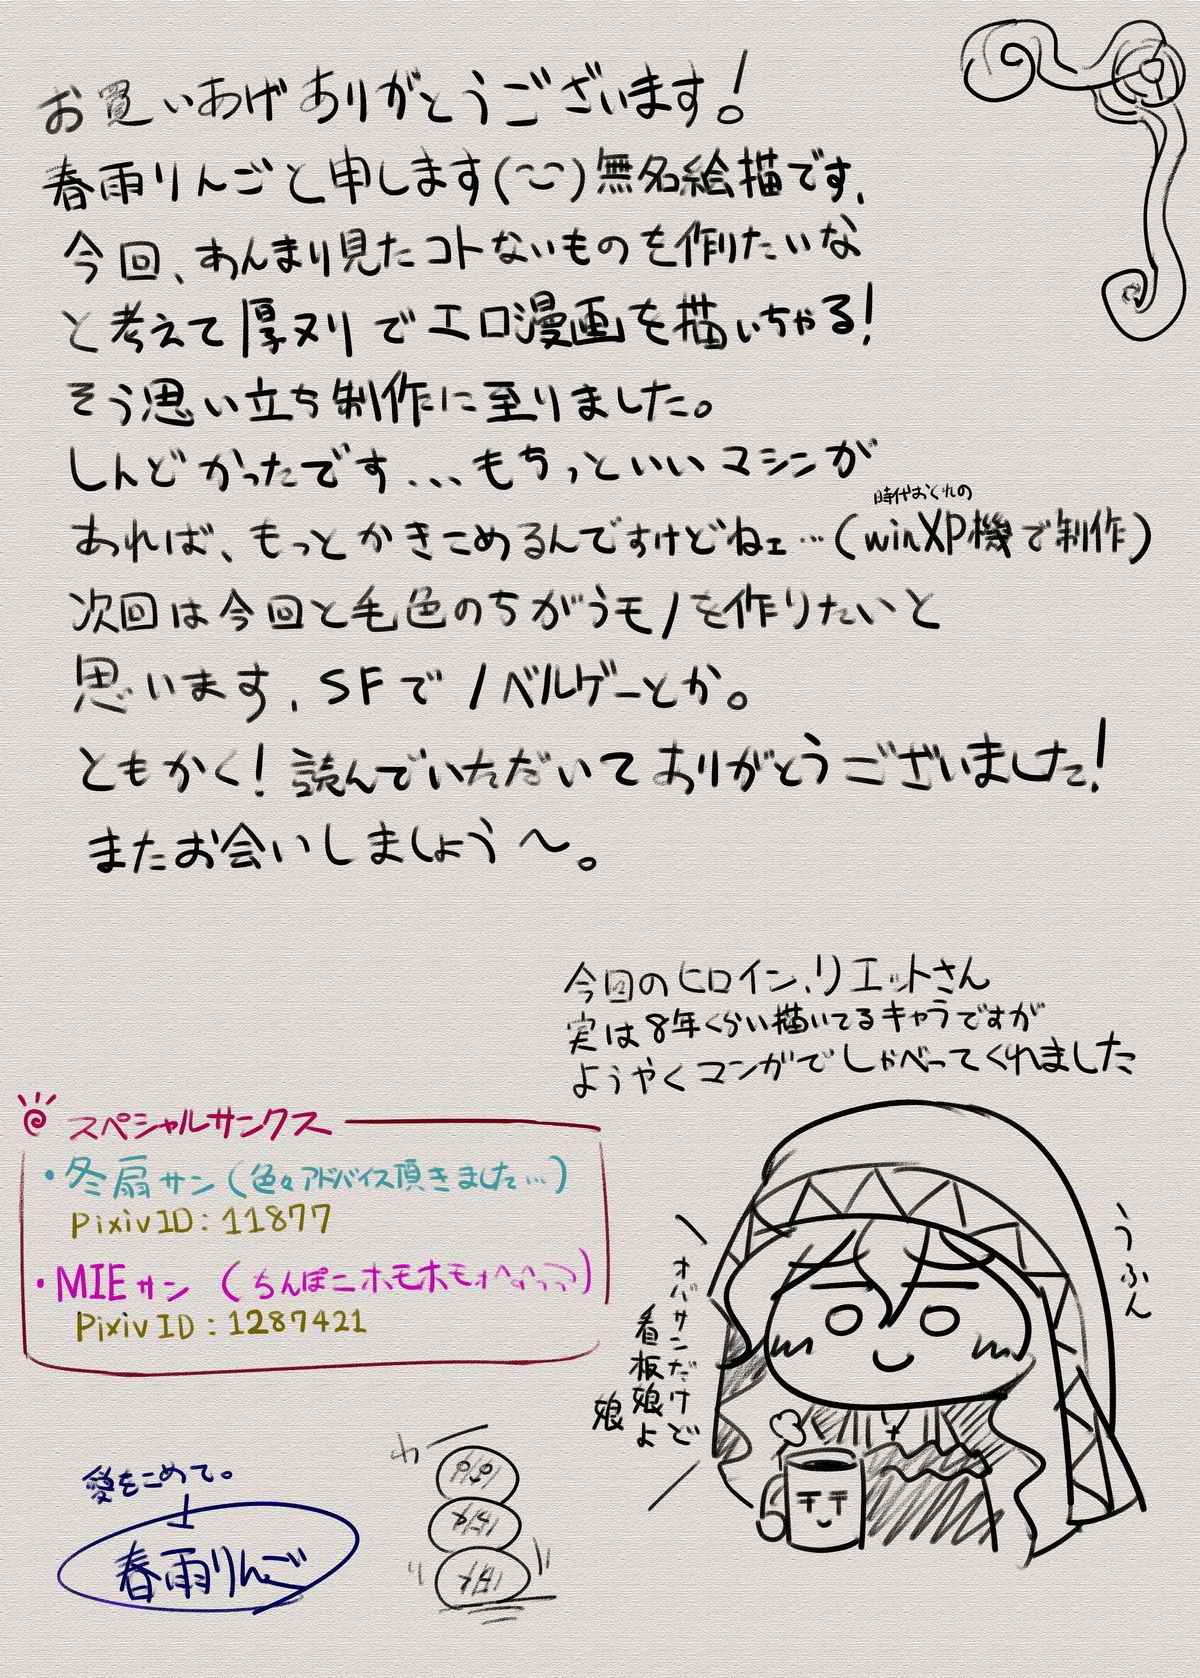 お買いあげありがとうございます!
春雨りんごと申します(^-^)無名絵描です、
今回、あんまり見たコトないものを作りたいな
と考えて厚ヌリでエロ漫画を描いちゃる!
そう思い立ち制作に至りました。
しんどかったです、、、もちっといいマシンが
時代おくれの
あれば、もっとかきこめるんですけどねェ…(winXP機で制作)
次回は今回と毛色のちがうモノを作りたいと
思います、SFでノベルゲーとか。
ともかく!読んでいただいてありがとうございました!
またお会いしましょう〜。
今回のヒロイン、リエットさん
実は8年くらい描いてるキャラですが
ようやくマンガでしゃべってくれました
スペシャルサンクス
・冬扇サン(色々アドバイス頂きました…)
Pixiv ID:11877
・MIEサン(ちんぽこホモホモ
Pixiv ID:1287421
うふん
オバサンだけど
看板娘よ
娘
愛をこめて。
春雨りんご